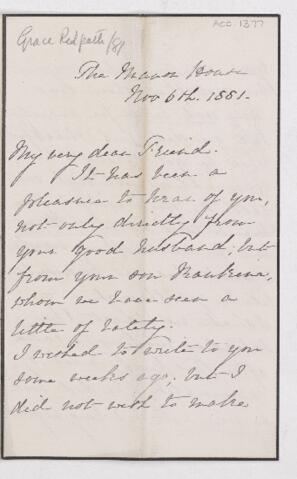 Grace Redpath/81
ACC. 1377
The Manor House
Nov 6th. 1881.
My very dear Friend.
It has been a
pleasure to hear of you,
not only directly from
your good husband, but
from your son
whom we have seen a
little of lately.
I wished to write to you
some weeks ago, but I
did not wish to make